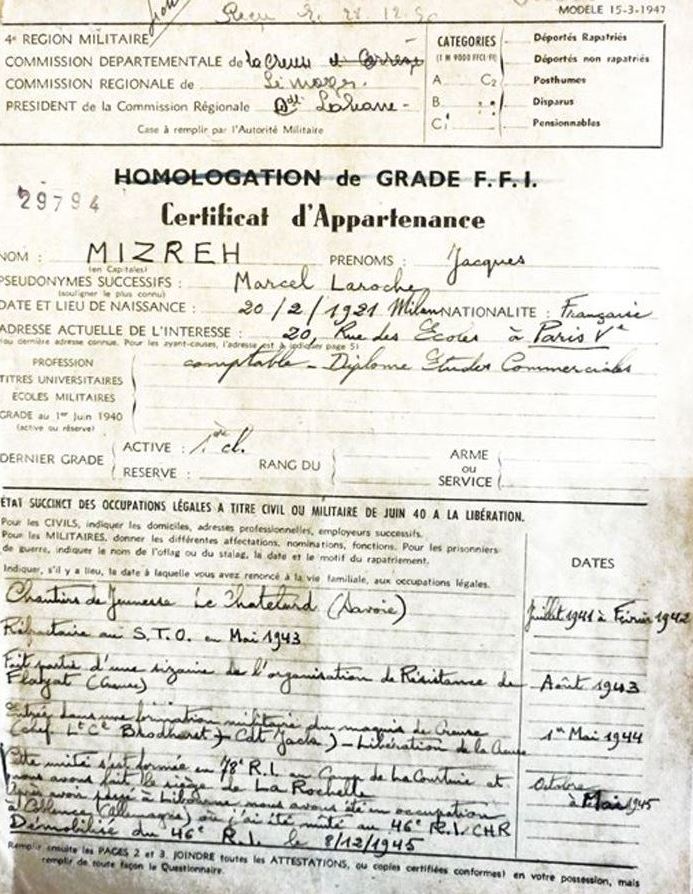 Reçu le 28.12.50
MODELE 15-3-1947
4e REGION MILITAIRE
COMMISSION DEPARTEMENTALE de la Creuse et Corrèze
COMMISSION REGIONALE de Limoges
PRESIDENT de la Commission Régionale
Case à remplir par l'Autorité Militaire
CATEGORIES
(I M 9000 FFCI/FI)
A C2
B " "
C1
Déportés Rapatriés
Déportés non rapatriés
Posthumes
Disparus
Pensionnables
HOMOLOGATION de GRADE F.F.I.
29794
Certificat d'Appartenance
NOM : MIZREH PRENOMS : Jacques
(en Capitales)
PSEUDONYMES SUCCESSIFS : Marcel Laroche
(souligner le plus connu)
DATE ET LIEU DE NAISSANCE : 20/2/1921 Milan NATIONALITE : Française
ADRESSE ACTUELLE DE L'INTERESSE : 20, Rue des Ecoles à Paris Ve
(ou dernière adresse connue. Pour les ayant-causes, l'adresse est à indiquer page 5)
PROFESSION comptable - Diplome Etudes Commerciales
TITRES UNIVERSITAIRES
ECOLES MILITAIRES
GRADE au 1er Juin 1940
(active ou réserve)
DERNIER GRADE
ACTIVE : 1ère cl.
RESERVE :
RANG DU
ARME
ou
SERVICE
ÉTAT SUCCINCT DES OCCUPATIONS LÉGALES A TITRE CIVIL OU MILITAIRE DE JUIN 40 A LA LIBÉRATION.
Pour les CIVILS, indiquer les domiciles, adresses professionnelles, employeurs successifs.
Pour les MILITAIRES, donner les différentes affectations, nominations, fonctions. Pour les prisonniers
de guerre, indiquer le nom de l'oflag ou du stalag, la date et le motif du rapatriement.
Indiquer, s'il y a lieu, la date à laquelle vous avez renoncé à la vie familiale, aux occupations légales.
DATES
Chantiers de Jeunesse Le Chatelard (Savoie) Juillet 1941 à Février 1942
Réfractaire au S.T.O. en Mai 1943
Fait partie d'une sizaine de l'organisation de Résistance de
Flayat (Creuse) Août 1943
Entrée dans une formation militaire du maquis de Creuse
(chef Lt Cl Brodhurst) - Cdt Jack) - Libération de la Creuse 1er Mai 1944
Cette unité s'est formée en 78e R.I. au Camp de La Courtine et
nous avons fait le siège de La Rochelle Octobre
Après avoir passé à Libourne nous avons été en occupation à Mai 1945
(Allemagne) où j'ai été muté au 46e R.I. CHR
Démobilisé du 46e R.I. le 8/12/1945
Remplir ensuite les PAGES 2 et 3. JOINDRE toutes les ATTESTATIONS, ou copies certifiées conformes) en votre possession, mais
remplir de toute façon le Questionnaire.